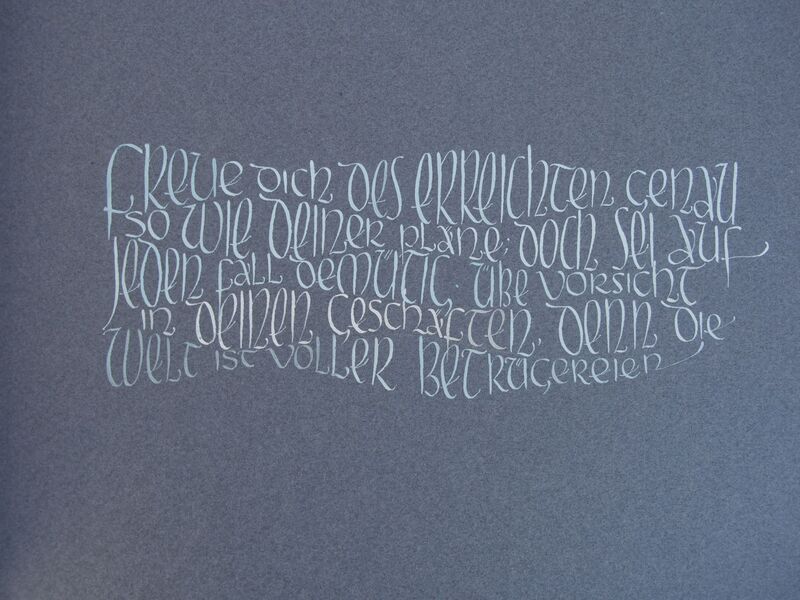 Freue dich des Erreichten genau
so wie deiner Pläne; doch sei auf
jeden Fall demütig. Übe Vorsicht
in deinen Geschäften, denn die
Welt ist voller Betrügereien